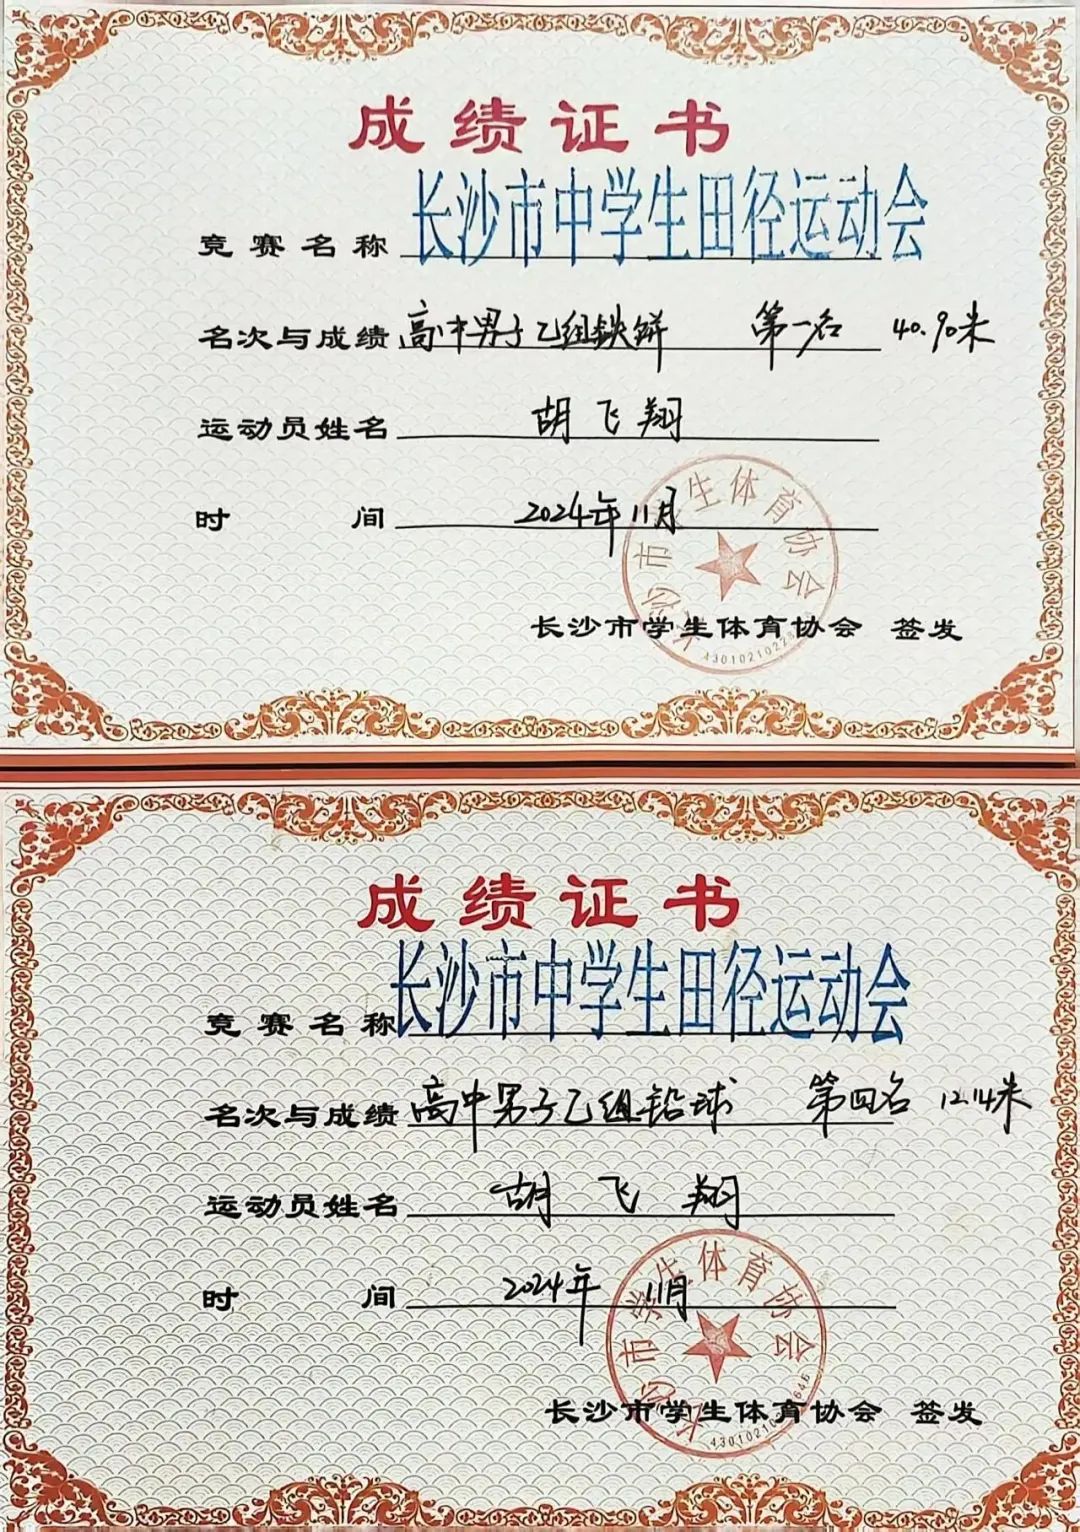 成绩证书
竞赛名称 长沙市中学生田径运动会
名次与成绩 高中男子乙组铁饼 第一名 40.90米
运动员姓名 胡飞翔
时间 2024年11月
长沙市学生体育协会
长沙市学生体育协会 签发
成绩证书
竞赛名称 长沙市中学生田径运动会
名次与成绩 高中男子乙组铅球 第四名 12.14米
运动员姓名 胡飞翔
时间 2024年11月
长沙市学生体育协会
长沙市学生体育协会 签发